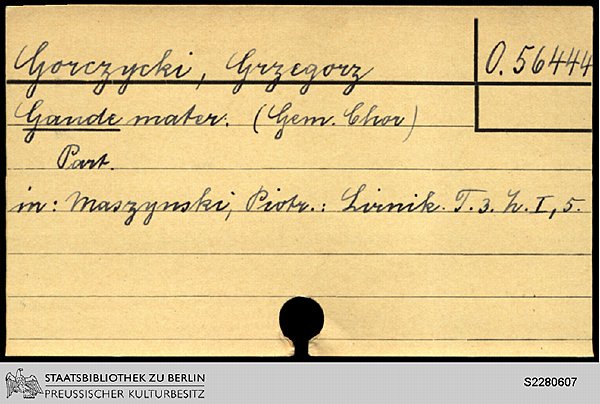 Gorczycki, Grzegorz
O. 56444
Gaude mater. (Gem. Chor)
Part.
in: Maszynski, Piotr.: Lirnik. T. 3. H. I, 5.
STAATSBIBLIOTHEK ZU BERLIN
PREUSSISCHER KULTURBESITZ
S2280607